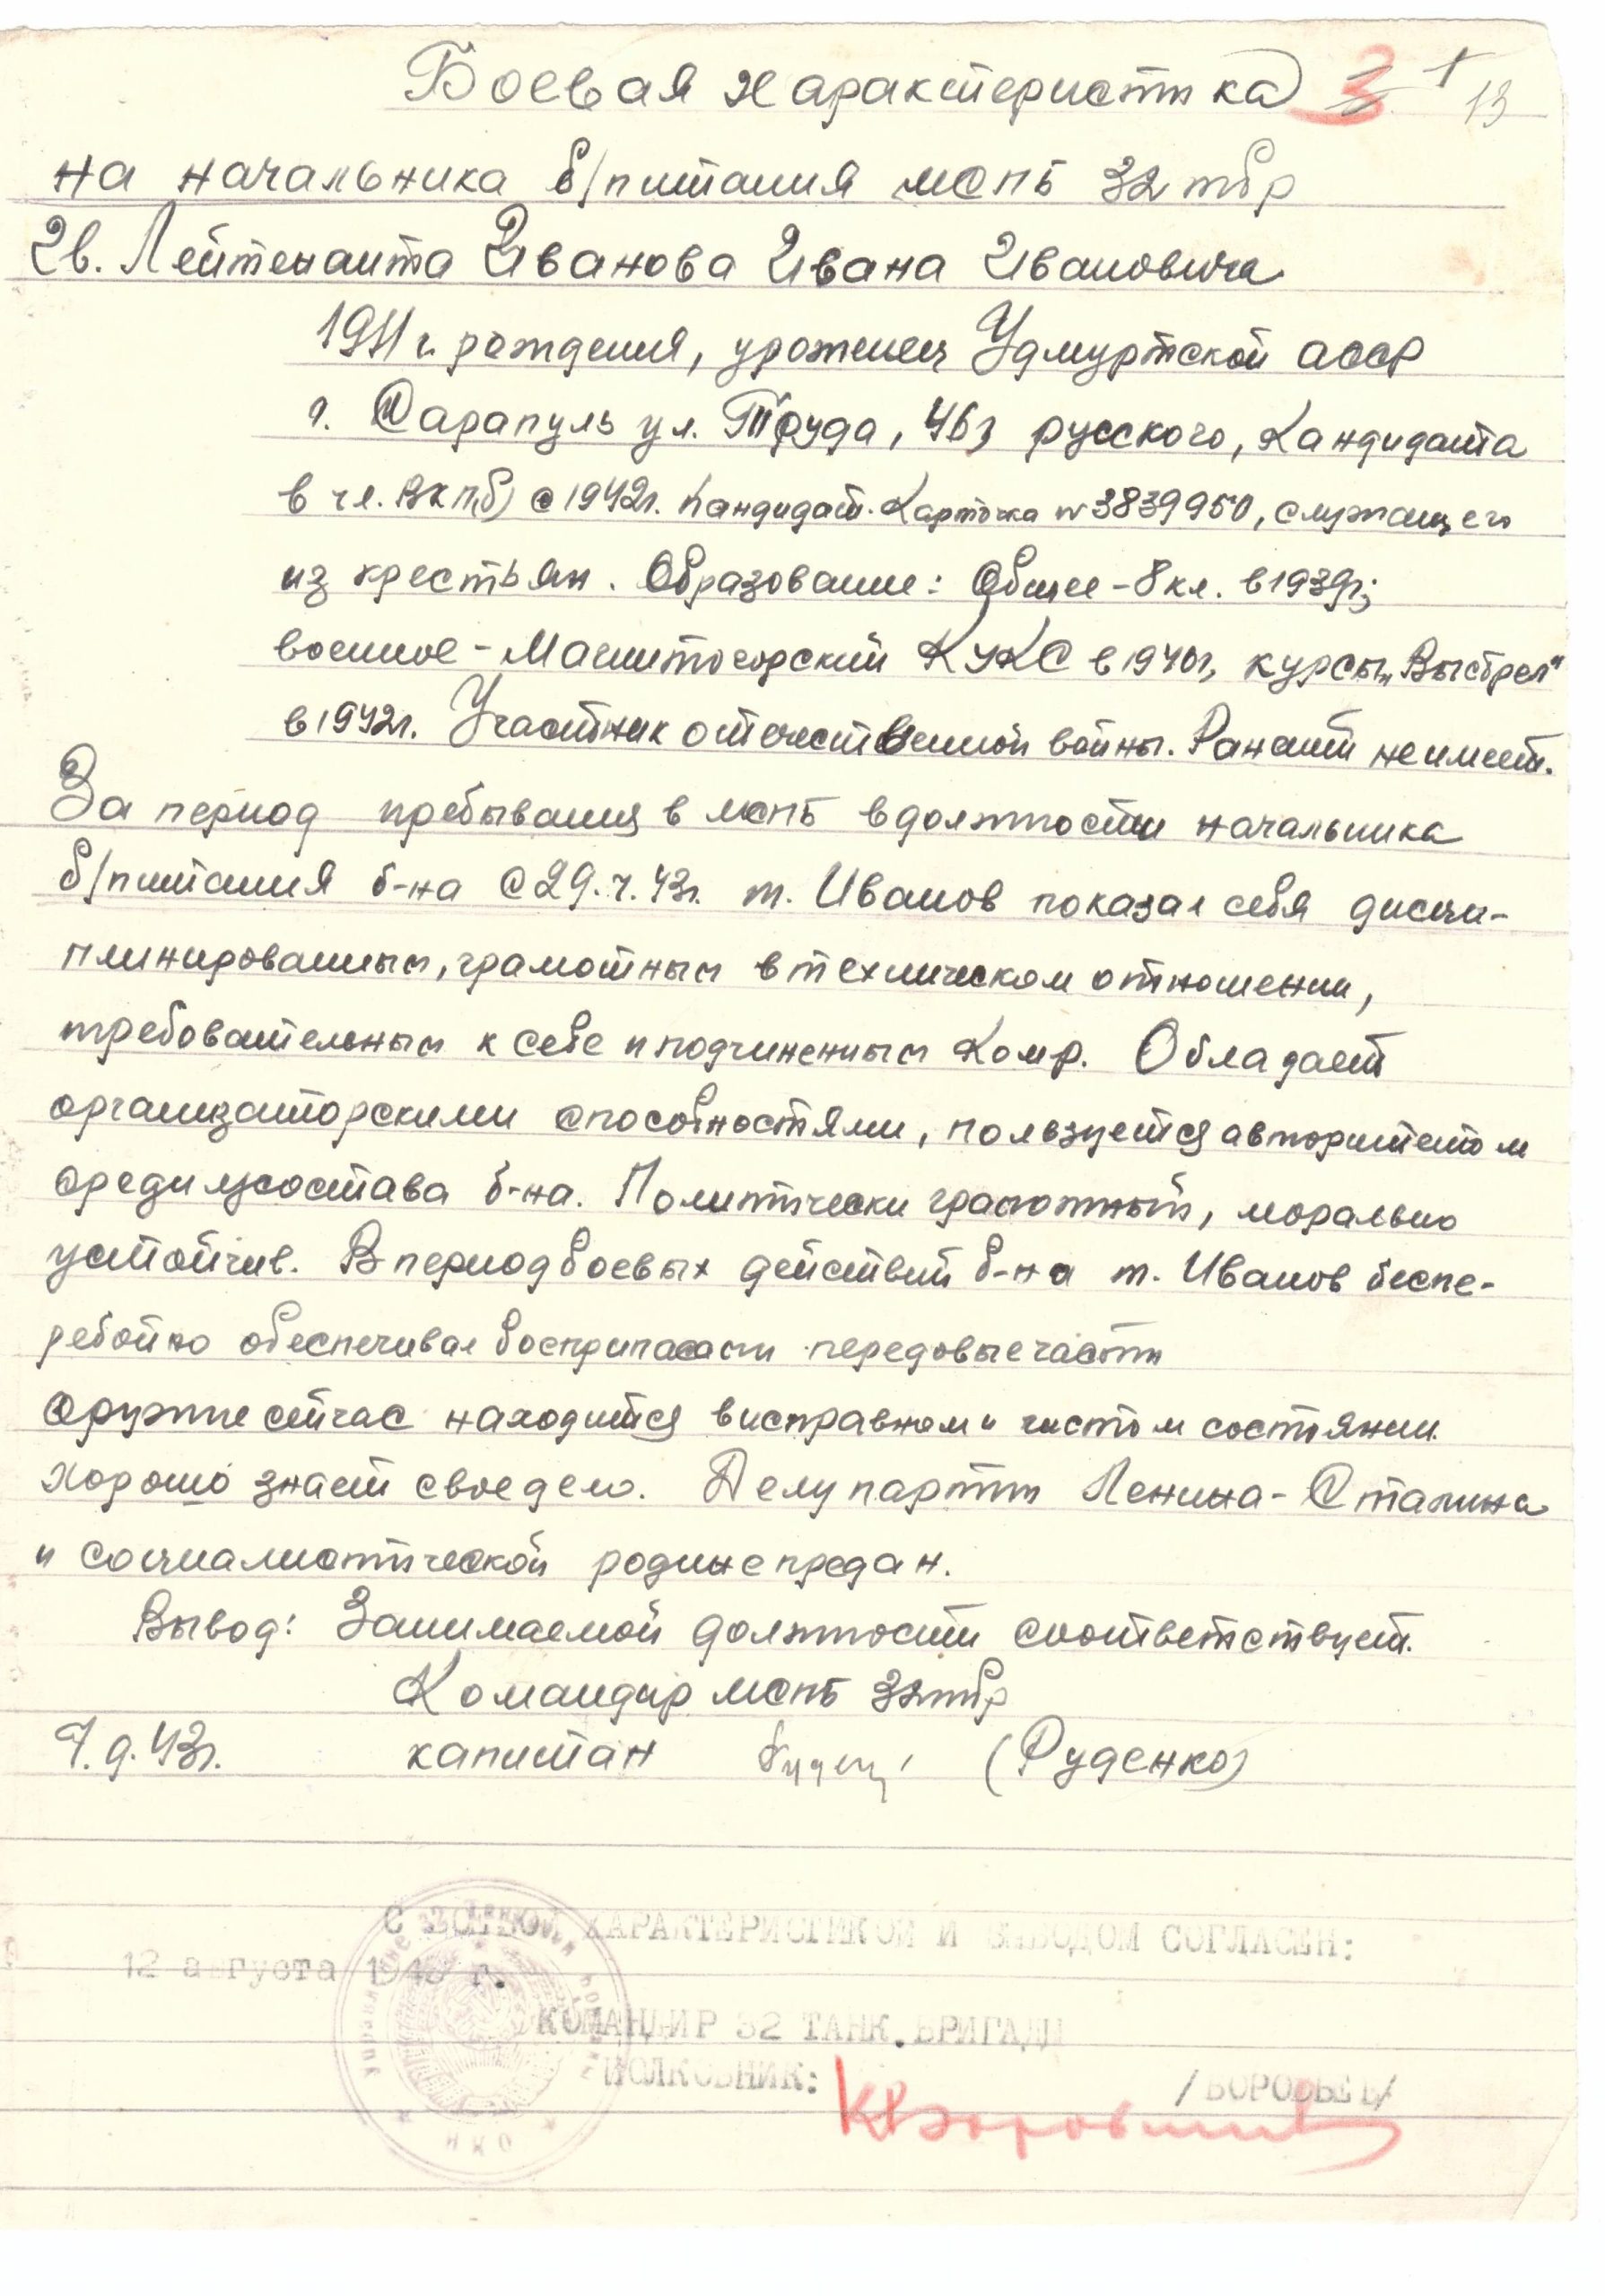 Боевая характеристика 3 13
на начальника б/питания мспб 32 тбр
Гв. Лейтенанта Иванова Ивана Ивановича
1911 г. рождения, уроженец Удмуртской АССР
г. Сарапуль ул. Труда, русского, Кандидата
в чл. ВКП(б) с 1942г. Кандидат. Карточка № 3839950, служащего
из крестьян. Образование: Общее - 8 кл. в 1939г;
военное - Магнитогорский КУКС в 1940г, курсы „Выстрел“
в 1942г. Участник отечественной войны. Ранений не имеет.
За период пребывания в мспб в должности начальника
б/питания б-на с 29.4.43г. т. Иванов показал себя дисци-
плинированным, грамотным в техническом отношении,
требовательным к себе и подчиненным Ком-р. Обладает
организаторскими способностями, пользуется авторитетом
среди л/состава б-на. Политически грамотный, морально
устойчив. В период боевых действий б-на т. Иванов беспе-
ребойно обеспечивал боеприпасами передовые части
Оружие сейчас находится в исправном и чистом состоянии.
Хорошо знает свое дело. Делу партии Ленина - Сталина
и социалистической родине предан.
Вывод: Занимаемой должности соответствует.
Командир мспб 32 тбр
7.8.43г. капитан (Руденко)
С БОЕВОЙ ХАРАКТЕРИСТИКОЙ И ВЫВОДОМ СОГЛАСЕН:
12 августа 1943 г.
КОМАНДИР 32 ТАНК. БРИГАДЫ
ПОЛКОВНИК: /ВОРОБЬЕВ/
НКО